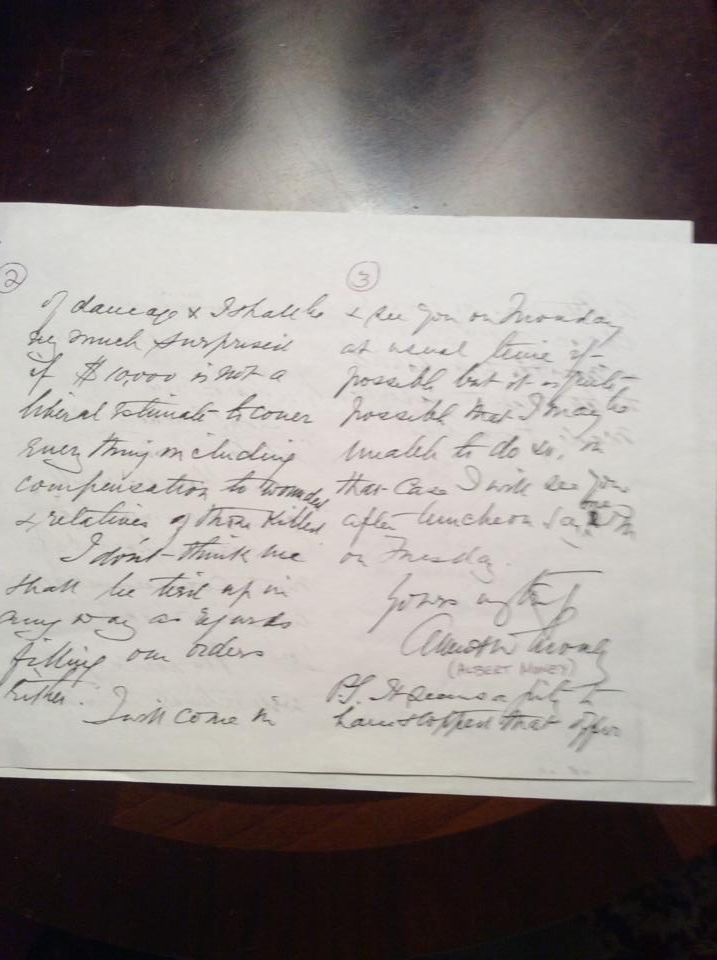 2
of damage & I shall be
very much surprised
if $10,000 is not a
liberal estimate to cover
everything including
compensation to wounded
& relatives of those killed
I don't think we
shall be tied up in
any way as regards
filling our orders
either.
I will come in
3
& see you on Monday
at usual time if
possible but it is quite
possible that I may be
unable to do so; in
that case I will see you
after luncheon say one
on Tuesday.
Yours
Albert Money
(ALBERT MONEY)
P.S. It seems a pity to
have stopped that